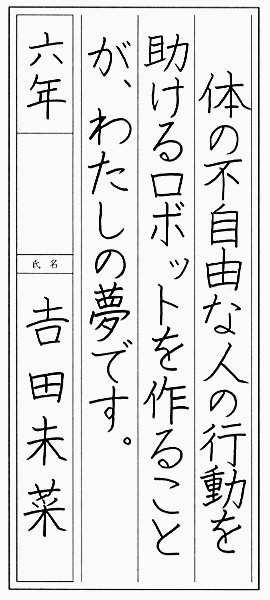 体の不自由な人の行動を
助けるロボットを作ること
が、わたしの夢です。
六年
氏名
吉田未菜